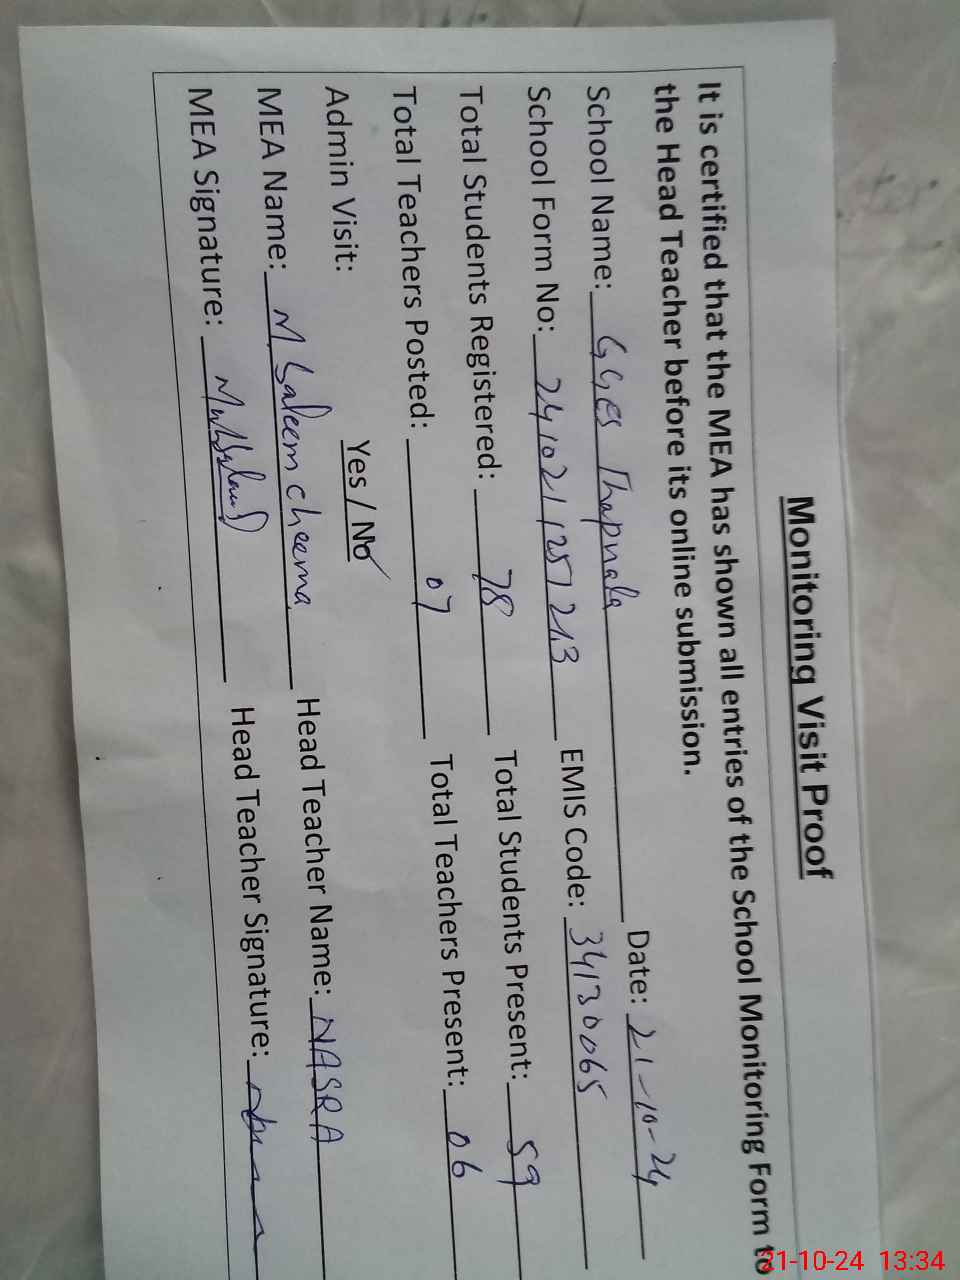 Monitoring Visit Proof
It is certified that the MEA has shown all entries of the School Monitoring Form to
the Head Teacher before its online submission.
School Name: GGES Thapnala Date: 21-10-24
School Form No: 2410211257213 EMIS Code: 34130065
Total Students Registered: 78 Total Students Present: 59
Total Teachers Posted: 07 Total Teachers Present: 06
Admin Visit: Yes / No
MEA Name: M Saleem cheema Head Teacher Name: NASRA
MEA Signature: Head Teacher Signature:
21-10-24 13:34